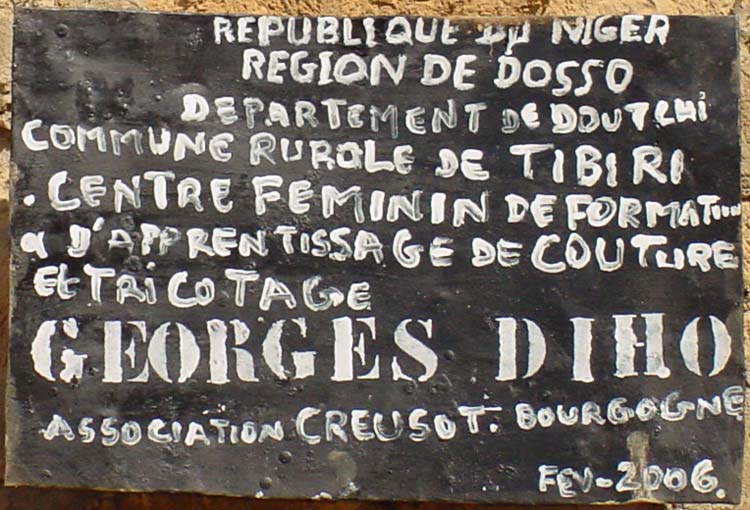 REPUBLIQUE DU NIGER
REGION DE DOSSO
DEPARTEMENT DE DOUTCHI
COMMUNE RURALE DE TIBIRI
. CENTRE FEMININ DE FORMATION
& D'APPRENTISSAGE DE COUTURE
Et TRICOTAGE
GEORGES DIHO
ASSOCIATION CREUSOT. BOURGOGNE
FEV-2006.